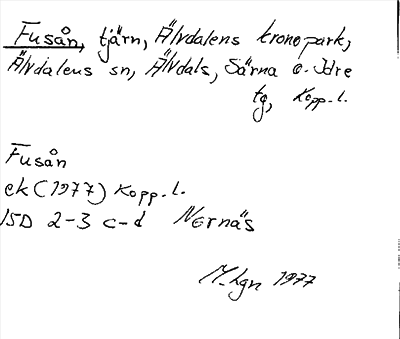 Fusån, tjärn, Älvdalens kronopark,
Älvdalens sn, Älvdals, Särna o. Idre
tg, Kopp. l.
Fusån
ek (1977) Kopp. l.
15D 2-3 c-d Nornäs
M-lgn 1977